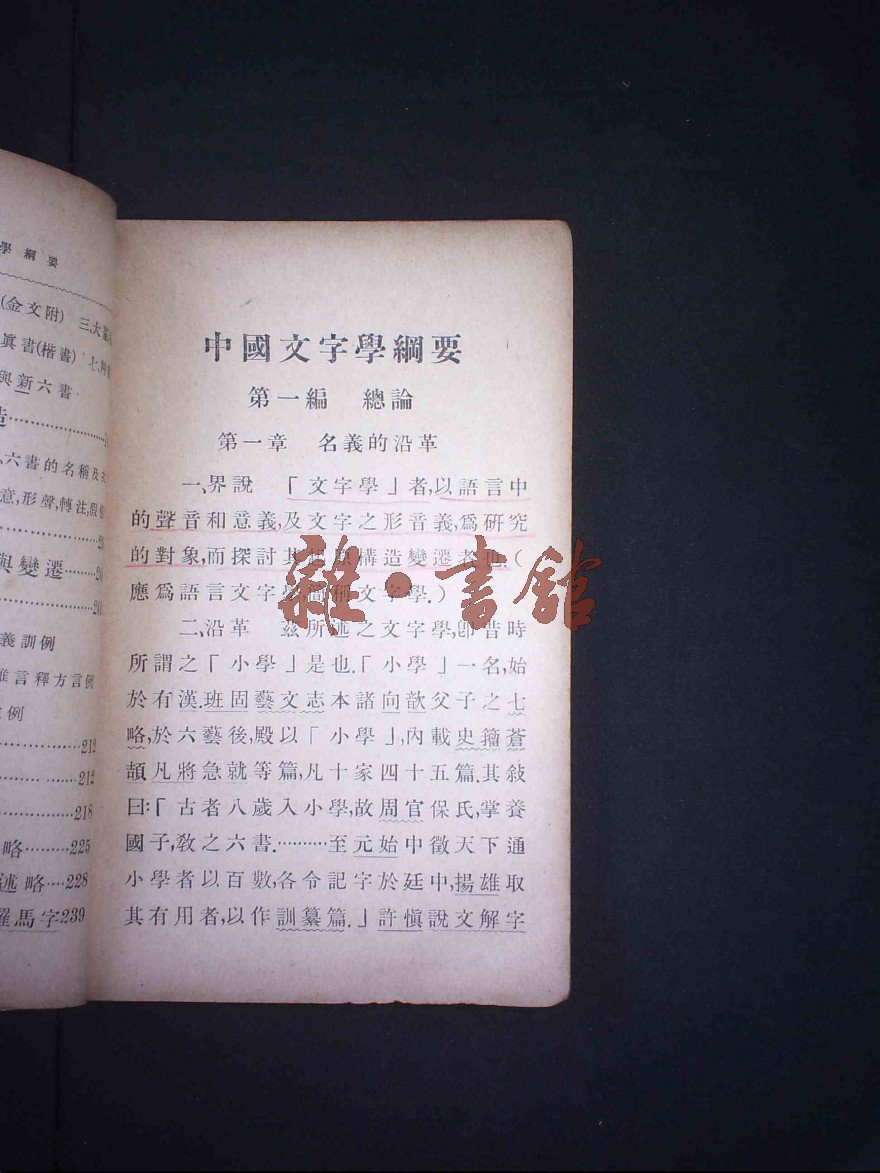 學綱要
(金文附) 三、大
眞書(楷書) 七、
與新六書
造
、六書的名稱及
意,形聲,轉注,假
與變遷
義訓例
雅言釋方言例
例
212
212
218
略………225
述略…228
羅馬字239
中國文字學綱要
第一編 總論
第一章 名義的沿革
一、界說 「文字學」者,以語言中
的聲音和意義,及文字之形音義,爲研究
的對象,而探討其起原構造變遷者也.(
應爲語言文字學,簡稱文字學.)
二、沿革 茲所述之文字學,卽昔時
所謂之「小學」是也.「小學」一名,始
於有漢.班固藝文志本諸向歆父子之七
略,於六藝後,殿以「小學」,內載史籀蒼
頡凡將急就等篇,凡十家四十五篇.其敍
曰:「古者八歲入小學,故周官保氏,掌養
國子,敎之六書.………至元始中徵天下通
小學者以百數,各令記字於廷中,揚雄取
其有用者,以作訓纂篇.」許愼說文解字
雜·書館